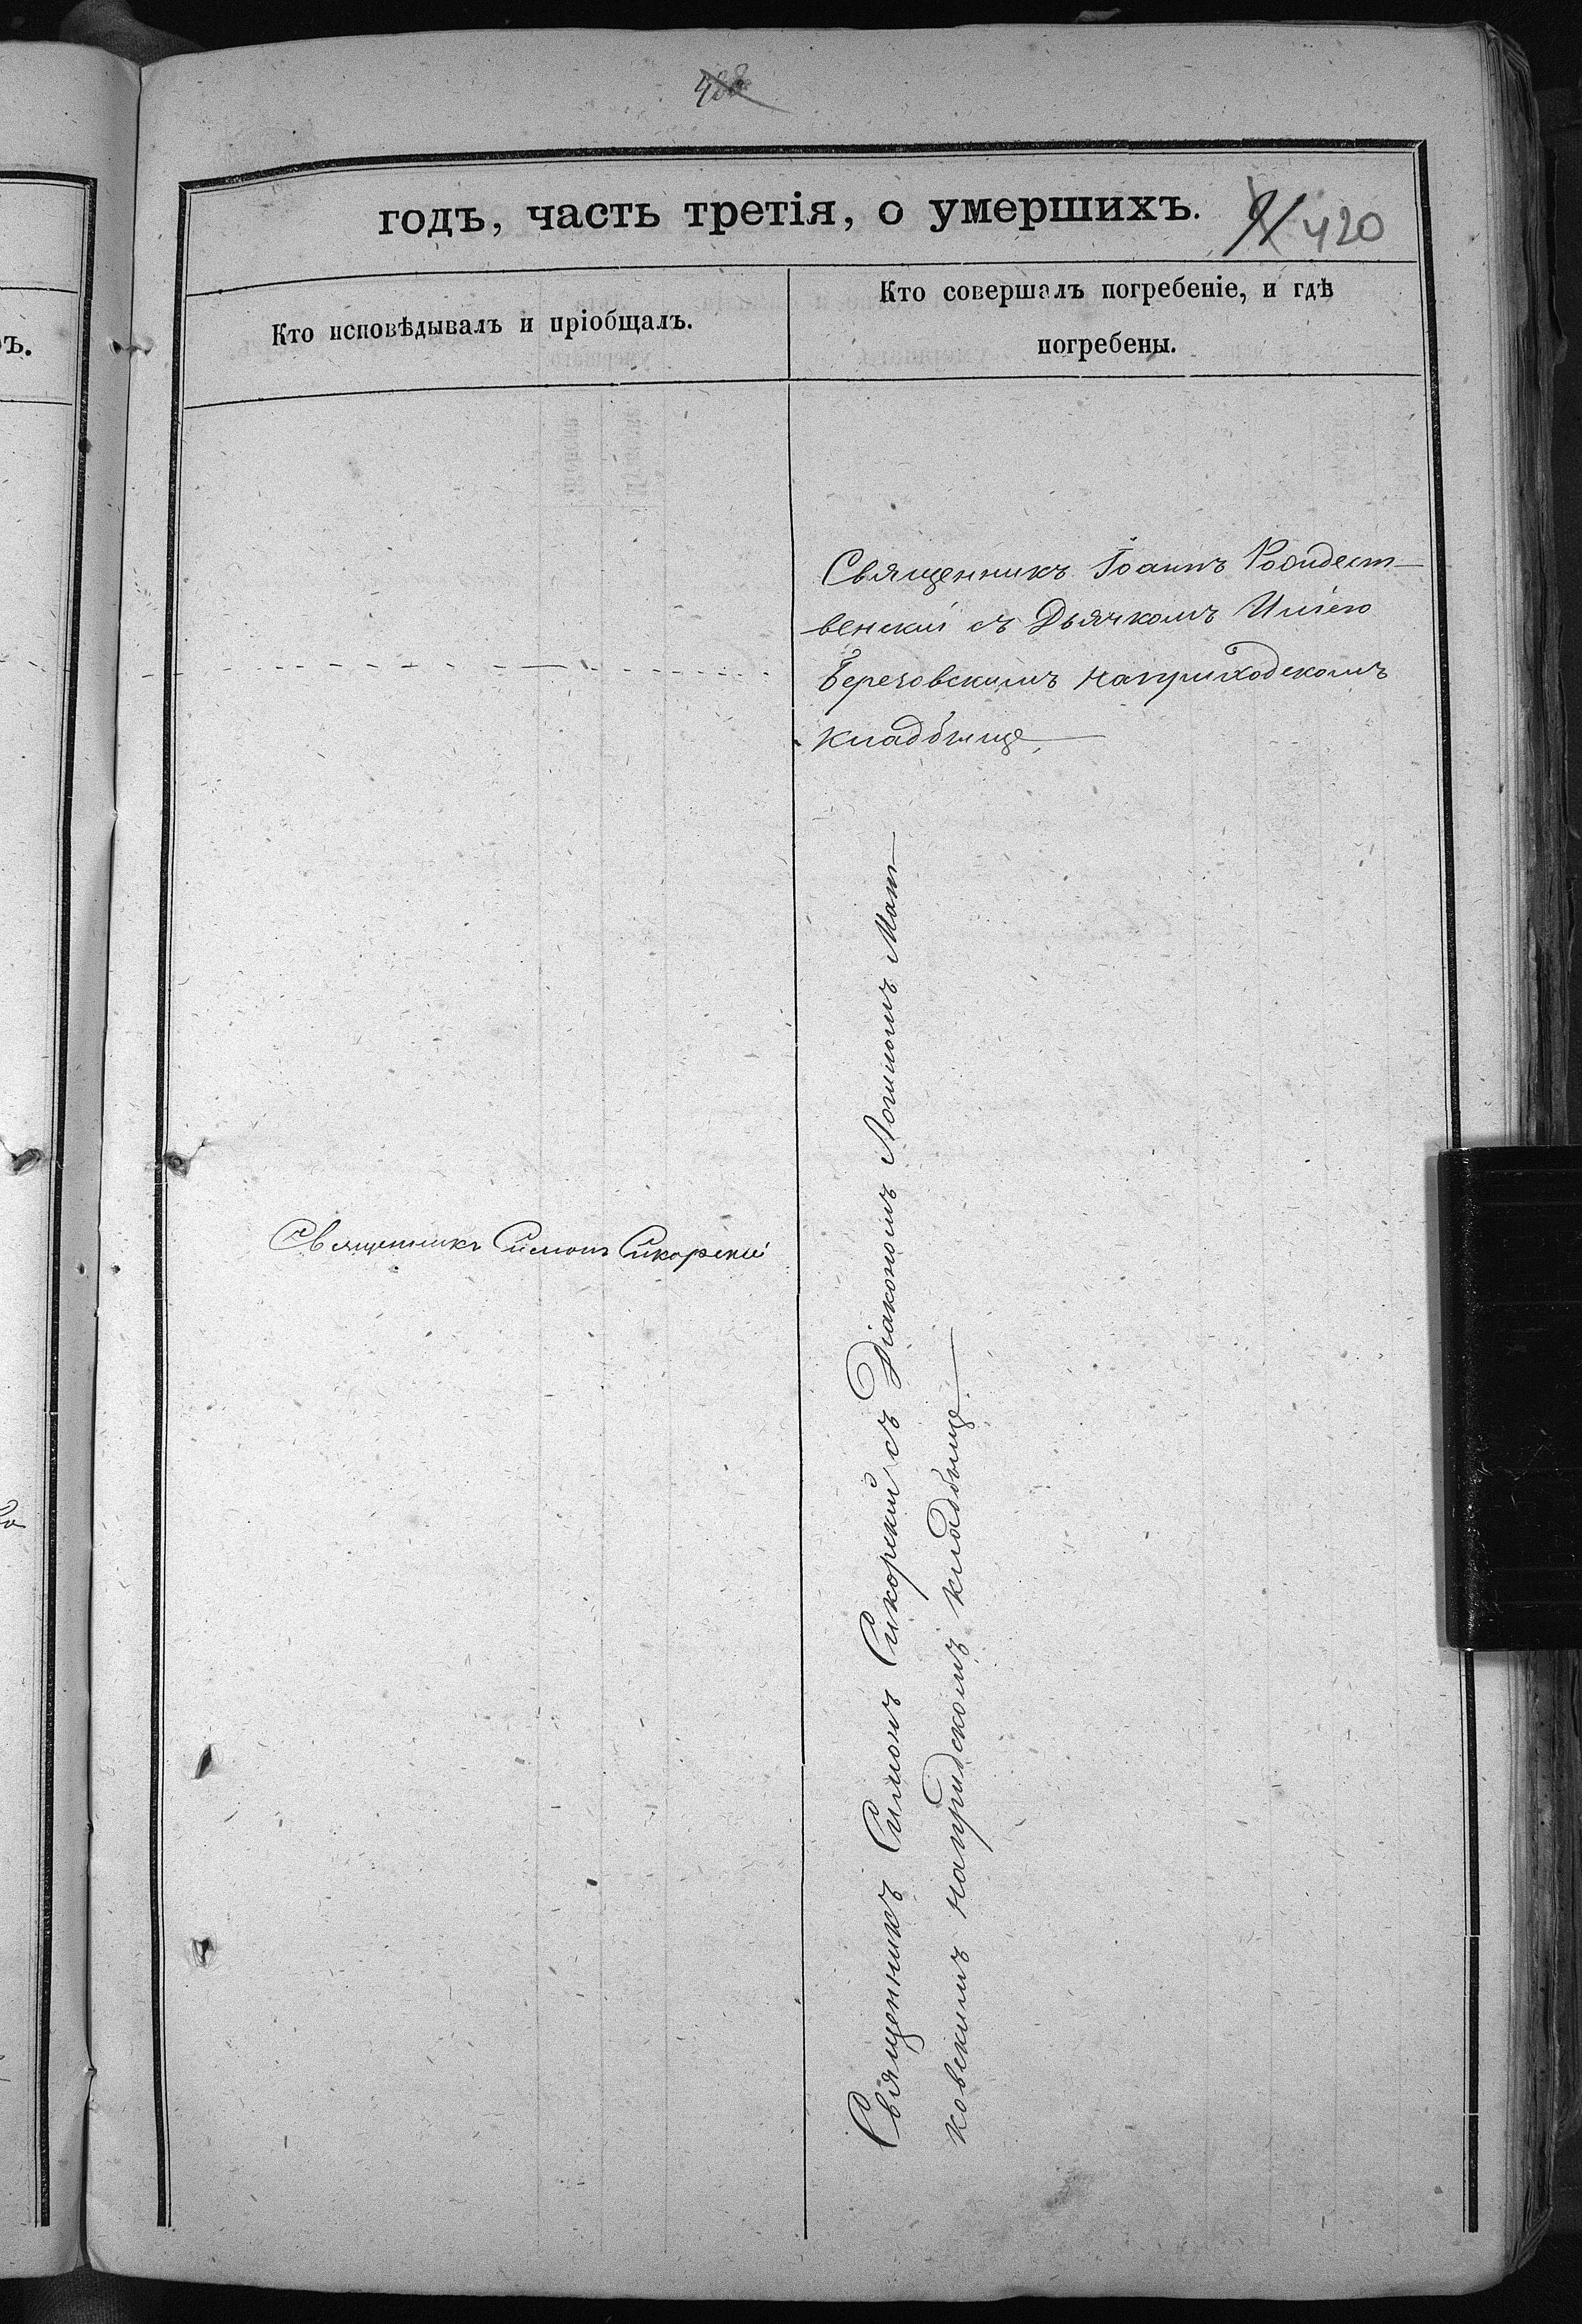 годъ, часть третія, о умершихъ.
420
Кто исповѣдывалъ и пріобщалъ.
Кто совершалъ погребеніе, и гдѣ
погребены.
Священникъ Іоаннъ Рождест-
венскій съ Дьячкомъ Иліею
Березовскимъ на приходскомъ
кладбище.
Священникъ Симонъ Сикорскій
Священникъ Симонъ Сикорскій съ Діакономъ Логиномъ
ковскимъ на кладбище.